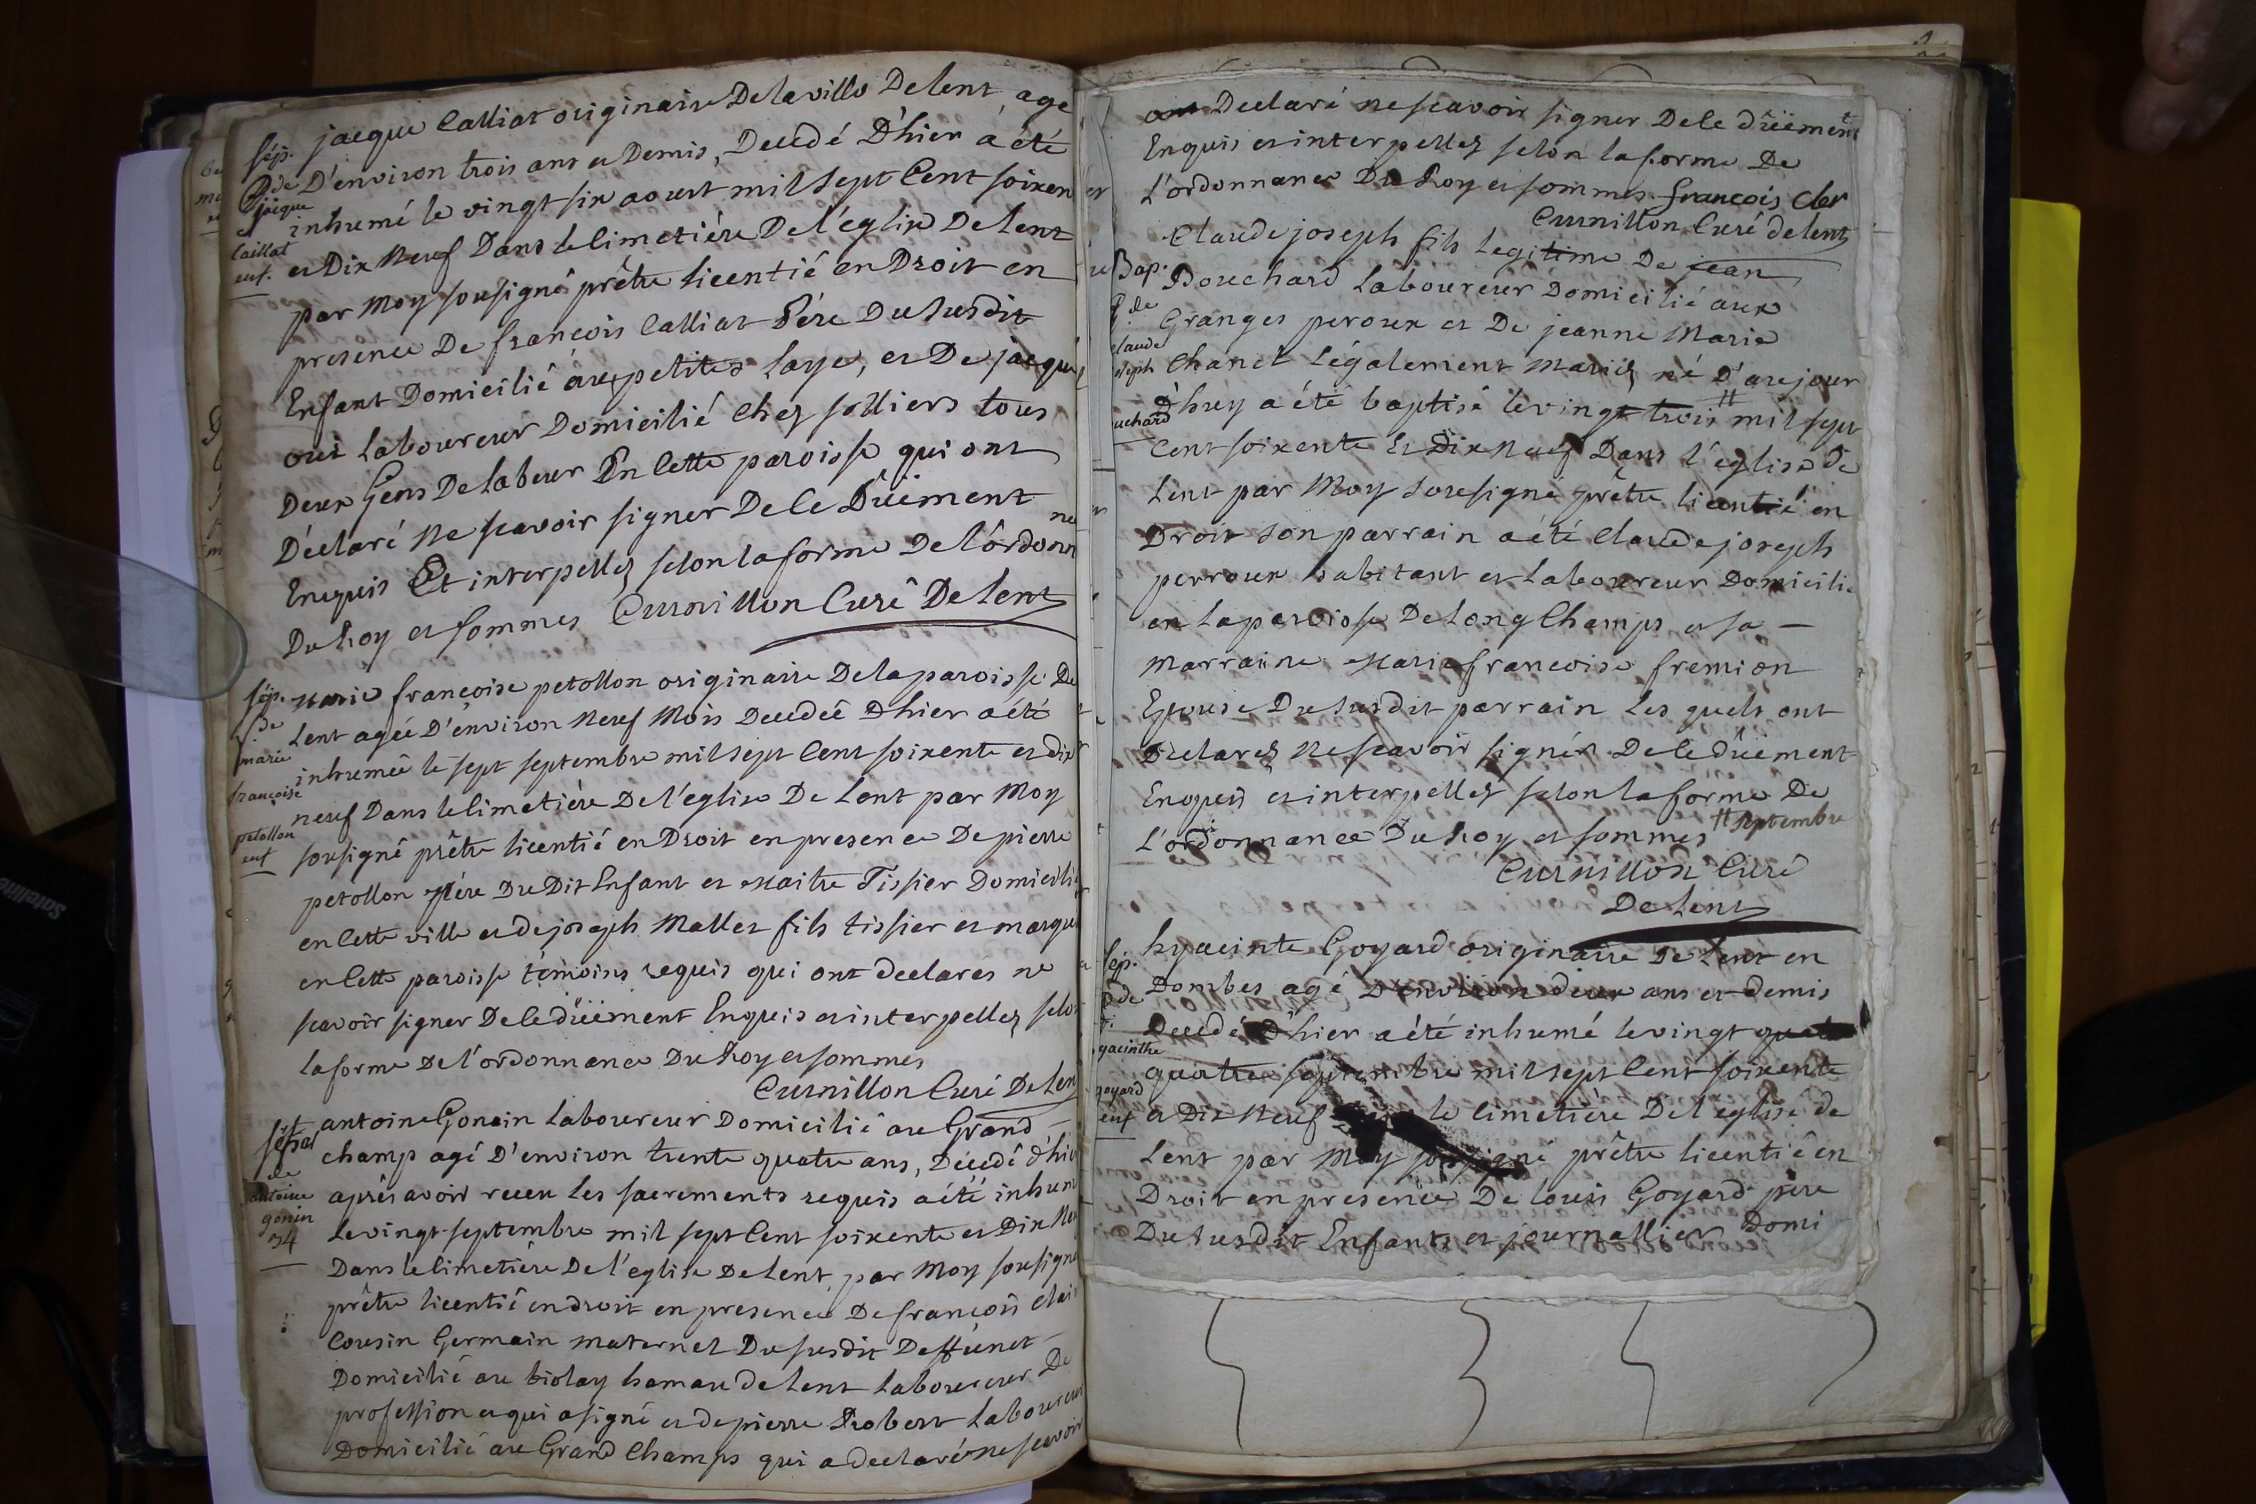 jacque Calliat originaire De la ville De lent, agé
D'environ trois ans et Demis, Decedé D'hier a été
inhumé le vingt six aoust mil sept Cent soixen
et Dix Neuf Dans le Cimetiére De l'église De lent
par Moy sousigné prêtre licentié en Droit en
presence De françois Calliat Pére Du susdit
Enfant Domicilié aux petites laye, et De jacque
laboureur Domicilié Chez solliers tous
Deux Gens De labeur En Cette paroisse qui ont
Déclaré Ne scavoir signer De Ce Dûëment
Enquis Et interpellez selon la forme De l'ordonn
ne
Du Roy et sommes Curnillon Curé De lent
sép.
de
jacque
Caillat
enf.
Marie françoise petollon originaire De la paroisse De
lent agéé D'environ Neuf Mois Decedée D'hier a été
inhumée le sept septembre mil sept Cent soixente et dix
neuf Dans le Cimetiére De l'eglise De lent par Moy
sousigné prêtre licentié en Droit en presence De pierre
petollon pére Du Dit Enfant et Maitre Tissier Domicilié
en Cette ville et de joseph Mallet fils tissier et
en Cette paroisse témoins requis qui ont declarés ne
scavoir signer De Ce dûëment Enquis et interpellez selon
la forme De l'ordonnance Du Roy et sommes
Curnillon Curé De len
sép.
de
marie
françoise
petollon
enf
antoine Gonin laboureur Domicilié au Grand
champ agé D'environ trente quatre ans, Décedé d'hier
aprés avoir recu les sacrements requis a été inhum
le vingt septembre mil sept Cent soixente et Dix Neu
Dans le Cimetiére De l'eglise De lent par Moy sousigné
prêtre licentié en droit en presence De françois clair
Cousin Germain maternel Du susdit Deffunct
Domicilié au biolay hamau de lent laboureur De
profession et qui a signé et de pierre Robert laboureur
Domicilié au Grand Champs qui a declaré ne scavoir
de
antoine
gonin
34
ont Declaré ne scavoir signer De Ce dûëment
Enquis et interpellez selon la forme De
l'ordonnance Du Roy et sommes françois Cler
Curnillon Curé de lent
Claude joseph fils legitime De jean
Bouchard laboureur Domicilié aux
Granges peroux et De jeanne Marie
Chanel légalement mariés né D'aujour
D'huy a été baptisé le vingt trois # mil sept
Cent soixente Et Dix Neuf Dans l'eglise de
lent par Moy sousigné prêtre licentié en
Droit son parrain a été Claude joseph
perroux habitant et laboureur Domicilié
en la paroisse De long Champs et sa
marraine Marie françoise fremion
Epouse Du susdit parrain les quels ont
Declarez Ne scavoir signér De Ce dûëment
Enquis et interpellez selon la forme De
l'ordonnance Du Roy et sommes # septembre
Curnillon Curé
De lent
Bap.
de
claude
oseph
uchard
hyacinte Goyard originaire De lent en
Dombes agé D'environ deux ans et demis
Decedé D'hier a été inhumé le vingt
quatre septembre mil sept Cent soixente
et Dix Neuf le Cimetiére De l'eglise de
lent par Moy sousigné prêtre licentié en
Droit en presence De louis Goyard pére
Du susdit Enfant et journallier Domi
sép.
de
yacinthe
goyard
enf